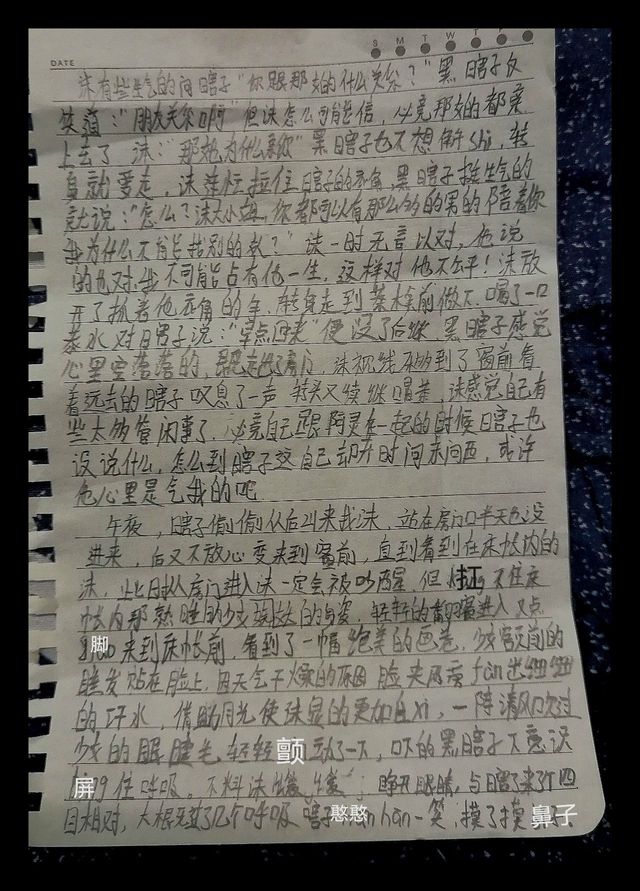 S M T W T F S
DATE
沫有些生气的问瞎子"你跟那女的什么关系?"黑瞎子仅
笑道:"朋友关系啊"但沫怎么可能信,必竟那女的都亲
上去了 沫:"那她为什么亲你"黑瞎子也不想解shi,转
身就要走,沫连忙拉住瞎子的衣角,黑瞎子挺生气的
说:"怎么?沫大小姐,你都可以有那么多的男的陪着你
我为什么不能找别的救?"沫一时无言以对,他说
的也对,我不可能占有他一生,这样对他不公平!沫放
开了抓着他衣角的手,转身走到茶桌前做下,喝了一口
茶水对瞎子说:"早点回来"便没了后续 黑瞎子感觉
心里空落落的,走出了房门,沫视线移到了窗前看
着远去的瞎子 叹息了一声 转头又续继喝茶,沫感觉自己有
些太多管闲事了,必竟自己跟阿灵在一起的时候瞎子也
没说什么,怎么到瞎子这自己却开时问东问西,或许
他心里是气我的吧
午夜,瞎子偷偷从后回来找沫,站在房门口半天也没
进来,后又不放心变来到窗前,直到看到在床帐内的
沫,此时从房门进入沫一定会被吵醒,但挡不住床
帐内那熟睡的少女的身姿,轻轻的翻窗进入,又点
脚 来到床帐前,看到了一幅绝美的画卷,少女额前的
睫发贴在脸上,因天气干燥的原因 脸夹两颊fan出细细
的汗水,借助月光使珠显的更加白xi,一阵清风吹过
少女的眼睫毛轻轻颤动了一下,吓的黑瞎子下意识
屏住呼吸,不料沫缓缓 睁开眼睛,与瞎子来了个四
目相对,大概过了几个呼吸 瞎子han han一笑,摸了摸鼻子
憨憨